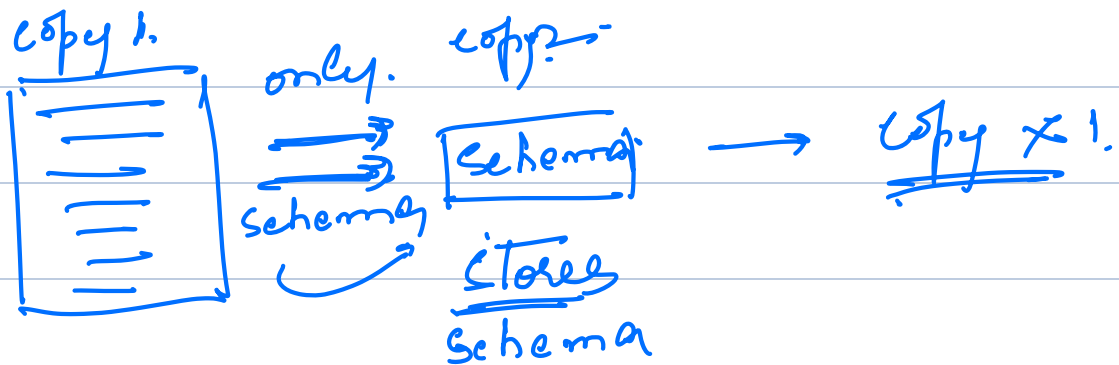 copy 1.
only.
schema
copy2
schema
stores
schema
copy x 1.